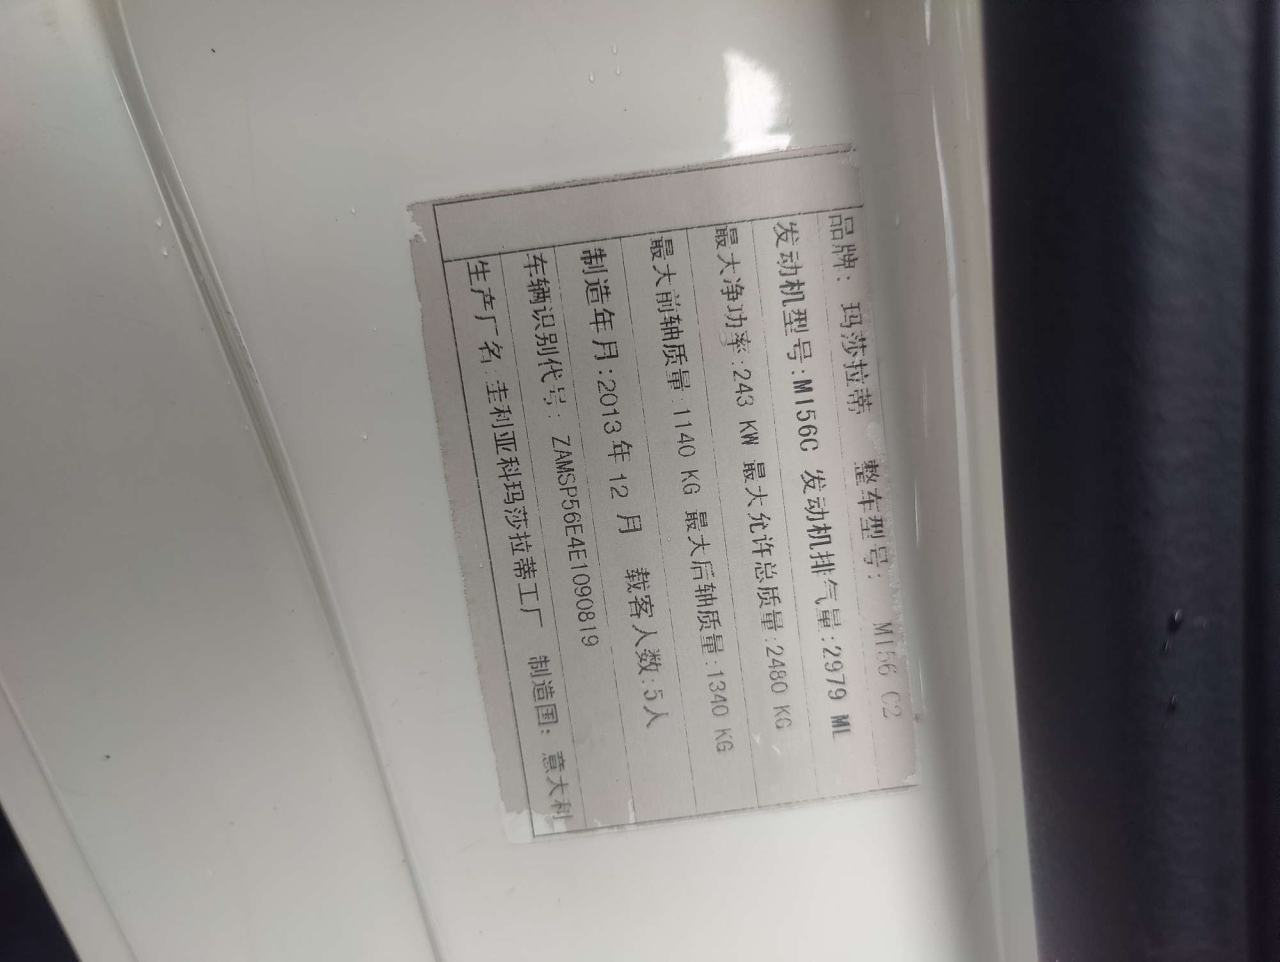 品牌: 玛莎拉蒂 整车型号: M156 C2
发动机型号:M156C 发动机排气量:2979 ML
最大净功率:243 KW 最大允许总质量:2480 KG
最大前轴质量:1140 KG 最大后轴质量:1340 KG
制造年月:2013年12月 载客人数:5人
车辆识别代号: ZAMSP56E4E1090819
生产厂名:圭利亚科玛莎拉蒂工厂 制造国: 意大利